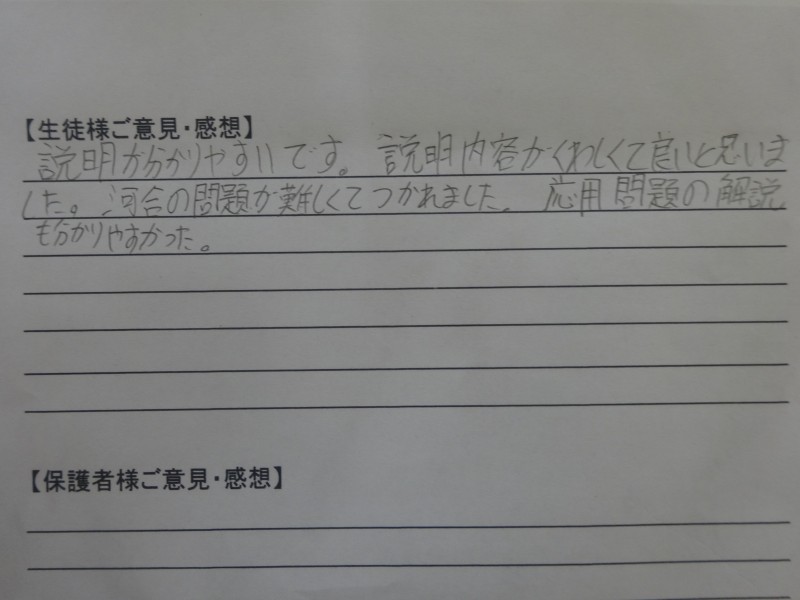 【生徒様ご意見・感想】
説明が分かりやすいです。説明内容がくわしくて良いと思いま
した。河合の問題が難しくてつかれました。応用問題の解説
も分かりやすかった。
【保護者様ご意見・感想】